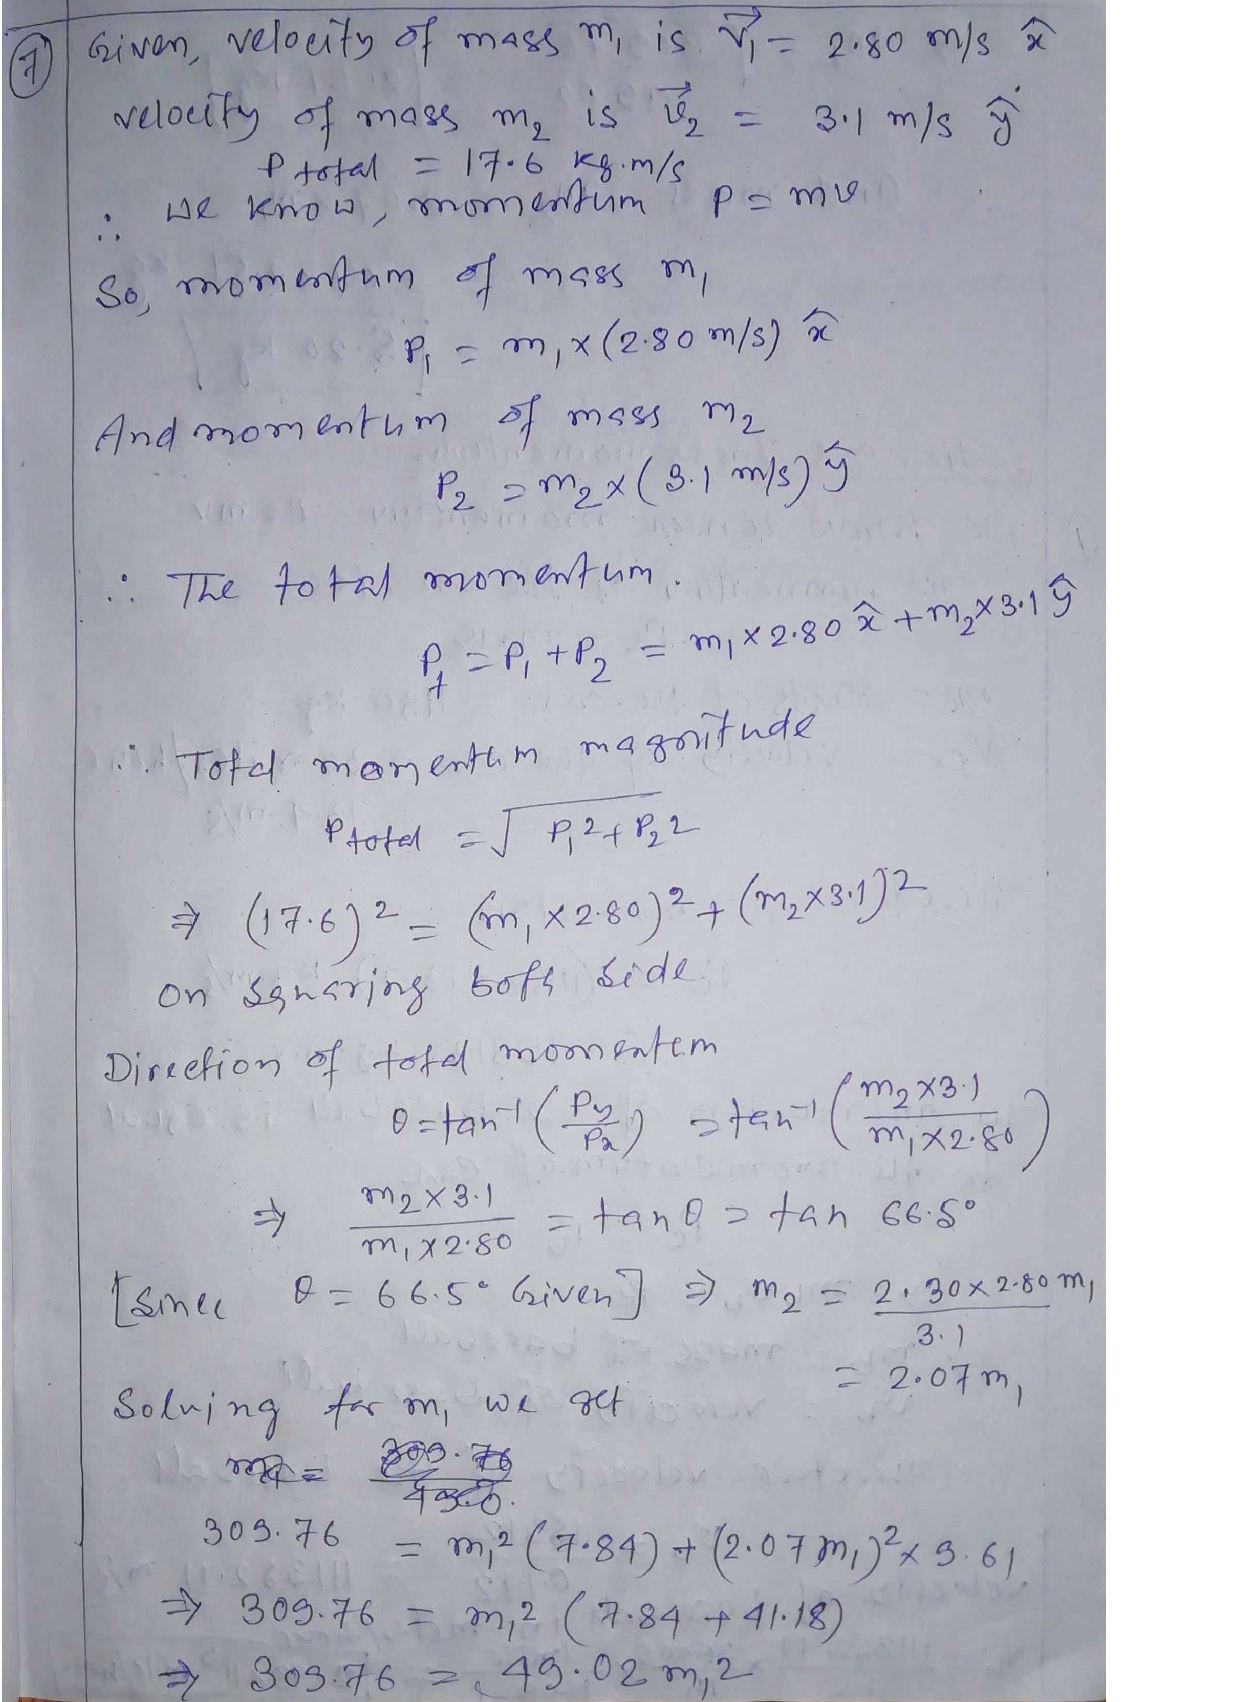 7 Given, velocity of mass m₁ is v⃗₁ = 2.80 m/s x̂
velocity of mass m₂ is v⃗₂ = 3.1 m/s ŷ
P total = 17.6 kg.m/s
∴ we know, momentum P = mv
So, momentum of mass m₁
P₁ = m₁ × (2.80 m/s) x̂
And momentum of mass m₂
P₂ = m₂ × (3.1 m/s) ŷ
∴ The total momentum.
P_t = P₁ + P₂ = m₁ × 2.80 x̂ + m₂ × 3.1 ŷ
∴ Total momentum magnitude
P total = √(P₁² + P₂²)
⇒ (17.6)² = (m₁ × 2.80)² + (m₂ × 3.1)²
on squaring both side
Direction of total momentum
θ = tan⁻¹ (Py/Px) = tan⁻¹ (m₂ × 3.1 / m₁ × 2.80)
⇒ m₂ × 3.1 / m₁ × 2.80 = tan θ = tan 66.5°
[Since θ = 66.5° Given] ⇒ m₂ = 2.30 × 2.80 m₁ / 3.1
= 2.07 m₁
Solving for m₁ we get
309.76 = m₁² (7.84) + (2.07 m₁)² × 9.61
⇒ 309.76 = m₁² (7.84 + 41.18)
⇒ 309.76 = 49.02 m₁²